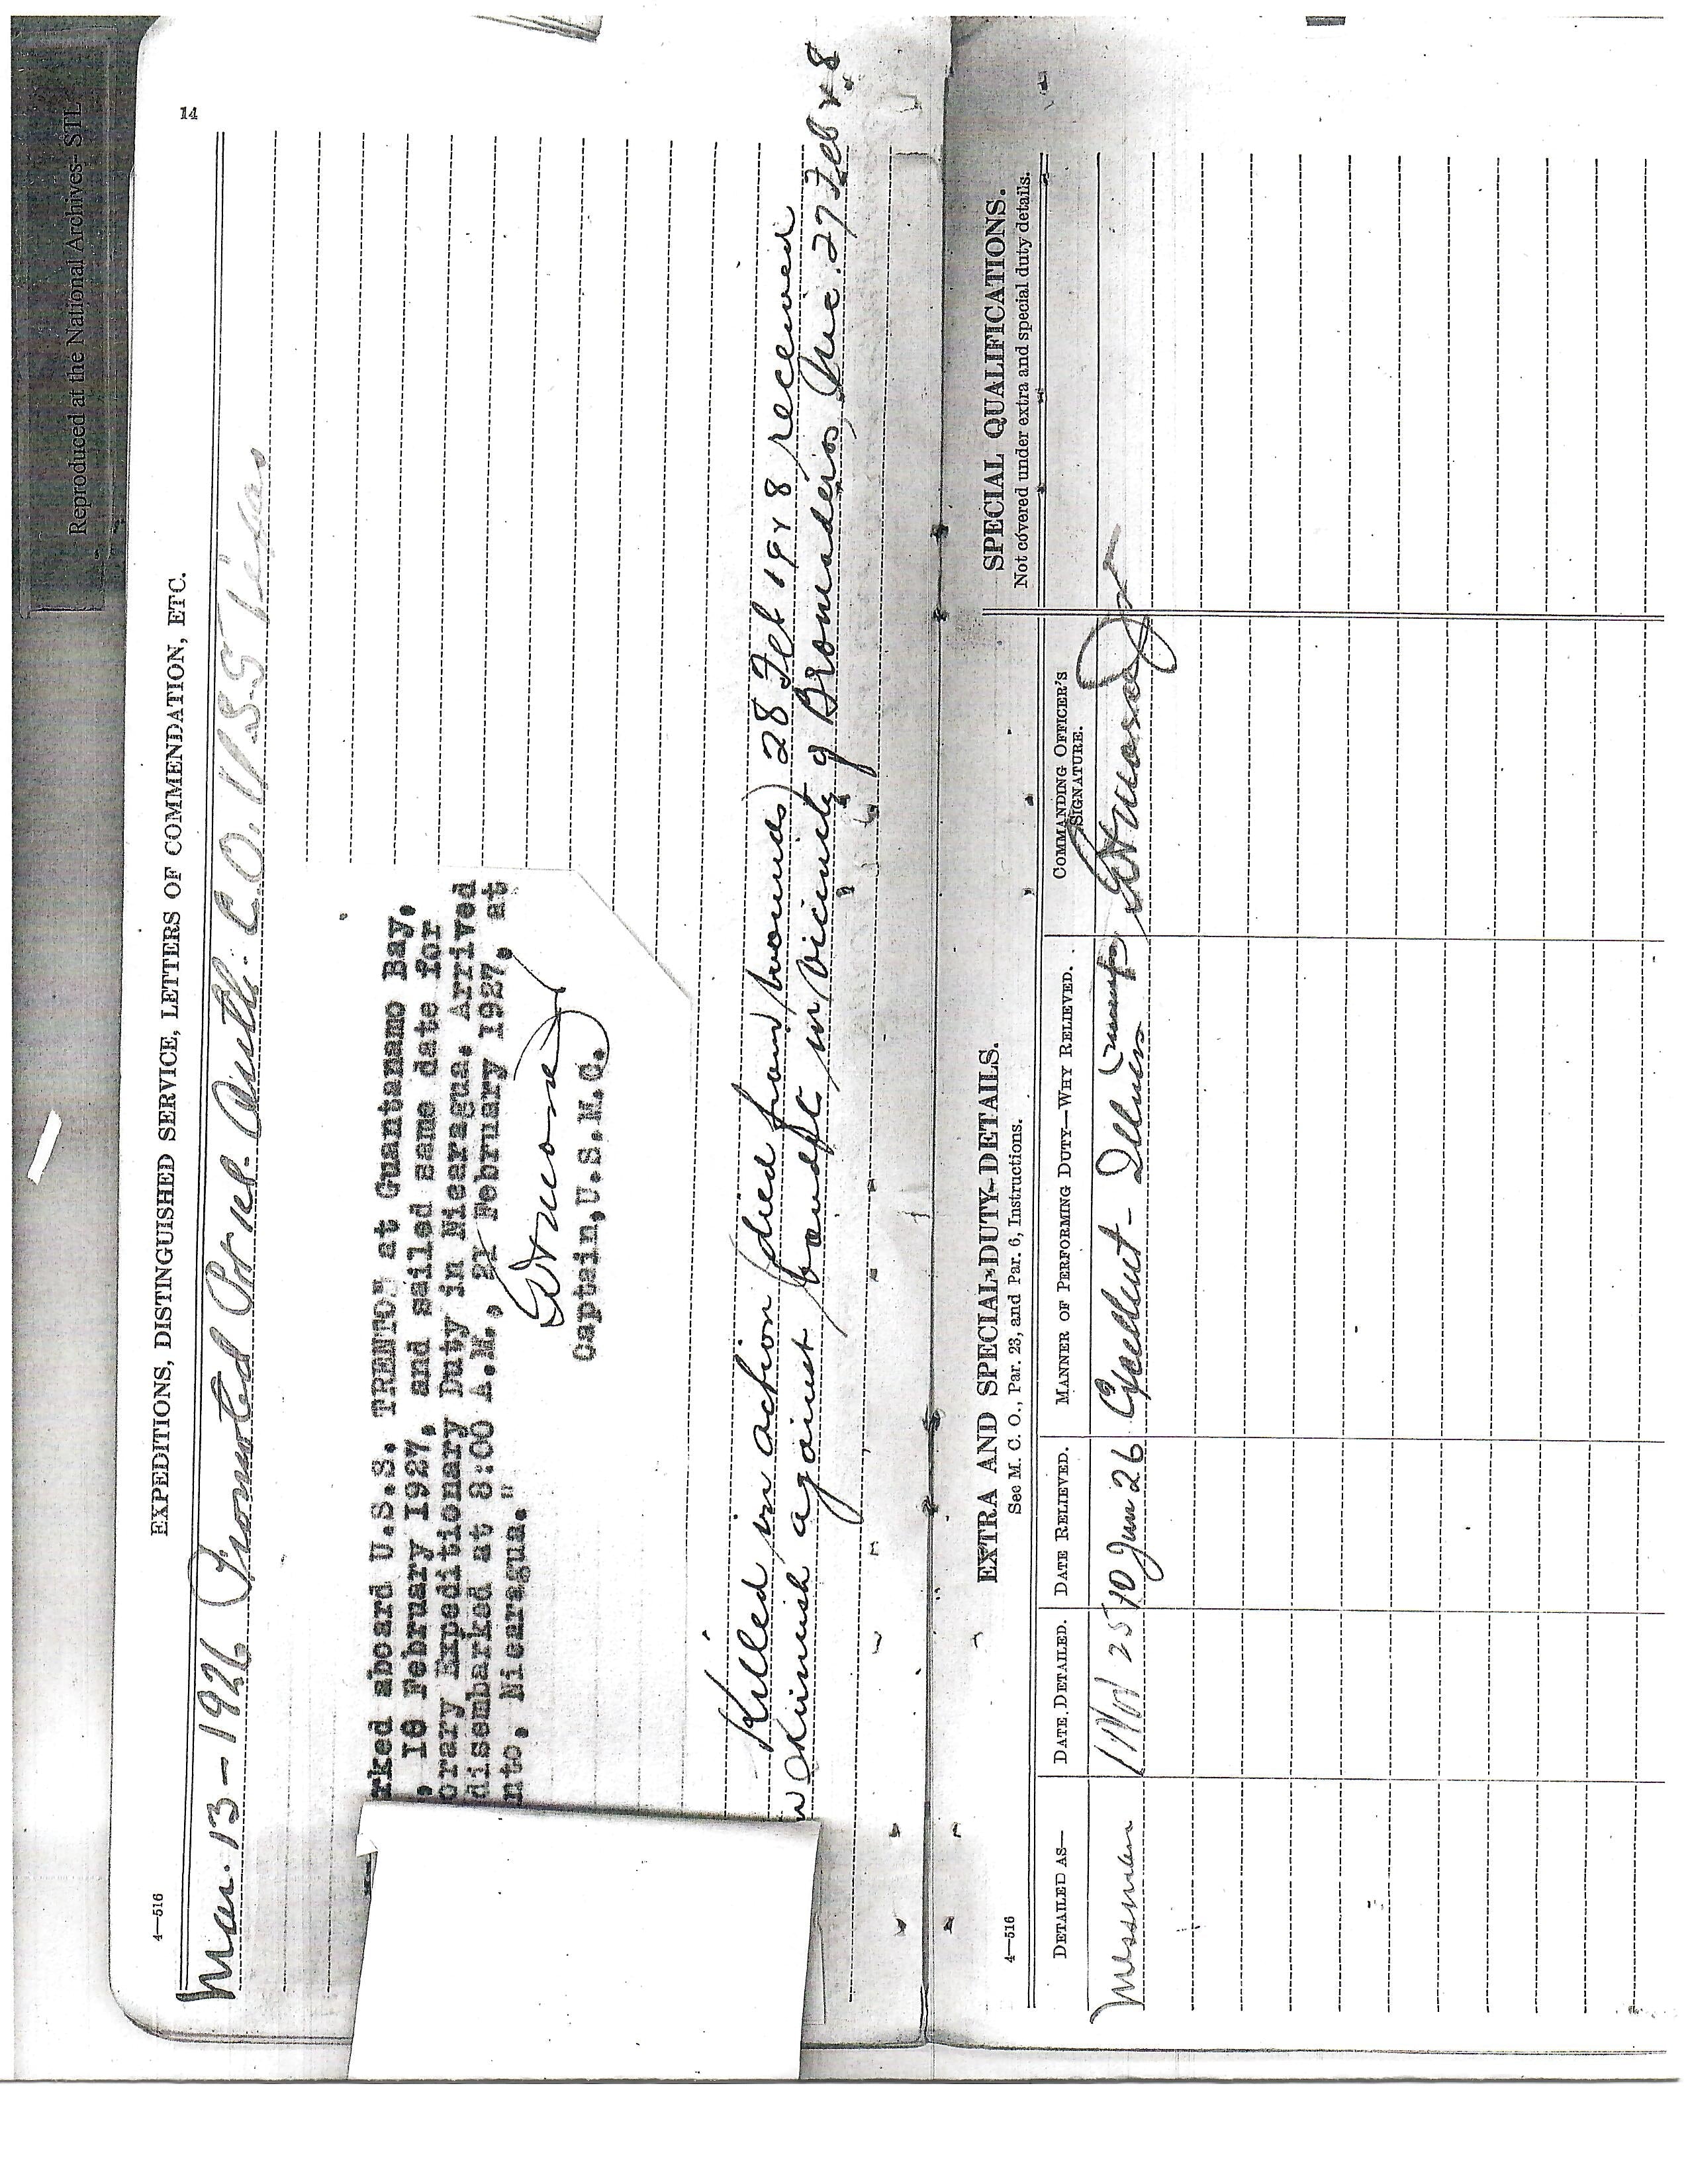 Reproduced at the National Archives- STL
14
4—516
EXPEDITIONS, DISTINGUISHED SERVICE, LETTERS OF COMMENDATION, ETC.
Mar. 13 - 1926 Promoted Pr. 1cl. Auth: C.O. USS Texas
rked aboard U.S.S. TRENTON at Guantanamo Bay,
, 18 February 1927, and sailed same date for
orary Expeditionary Duty in Nicaragua. Arrived
disembarked at 8:00 A.M., 21 February 1927, at
nto, Nicaragua."
Captain, U.S.M.C.
Killed in action (died from wounds) 28 Feb 1928 received
in skirmish against bandits in vicinity of Bromaderos, Nic. 27 Feb 28
4—516
EXTRA AND SPECIAL-DUTY-DETAILS.
See M. C. O., Par. 23, and Par. 6, Instructions.
SPECIAL QUALIFICATIONS.
Not covered under extra and special duty details.
DETAILED AS—
DATE DETAILED.
DATE RELIEVED.
MANNER OF PERFORMING DUTY—WHY RELIEVED.
COMMANDING OFFICER'S
SIGNATURE.
Messman 1 Nov 25 10 Jun 26 Excellent -